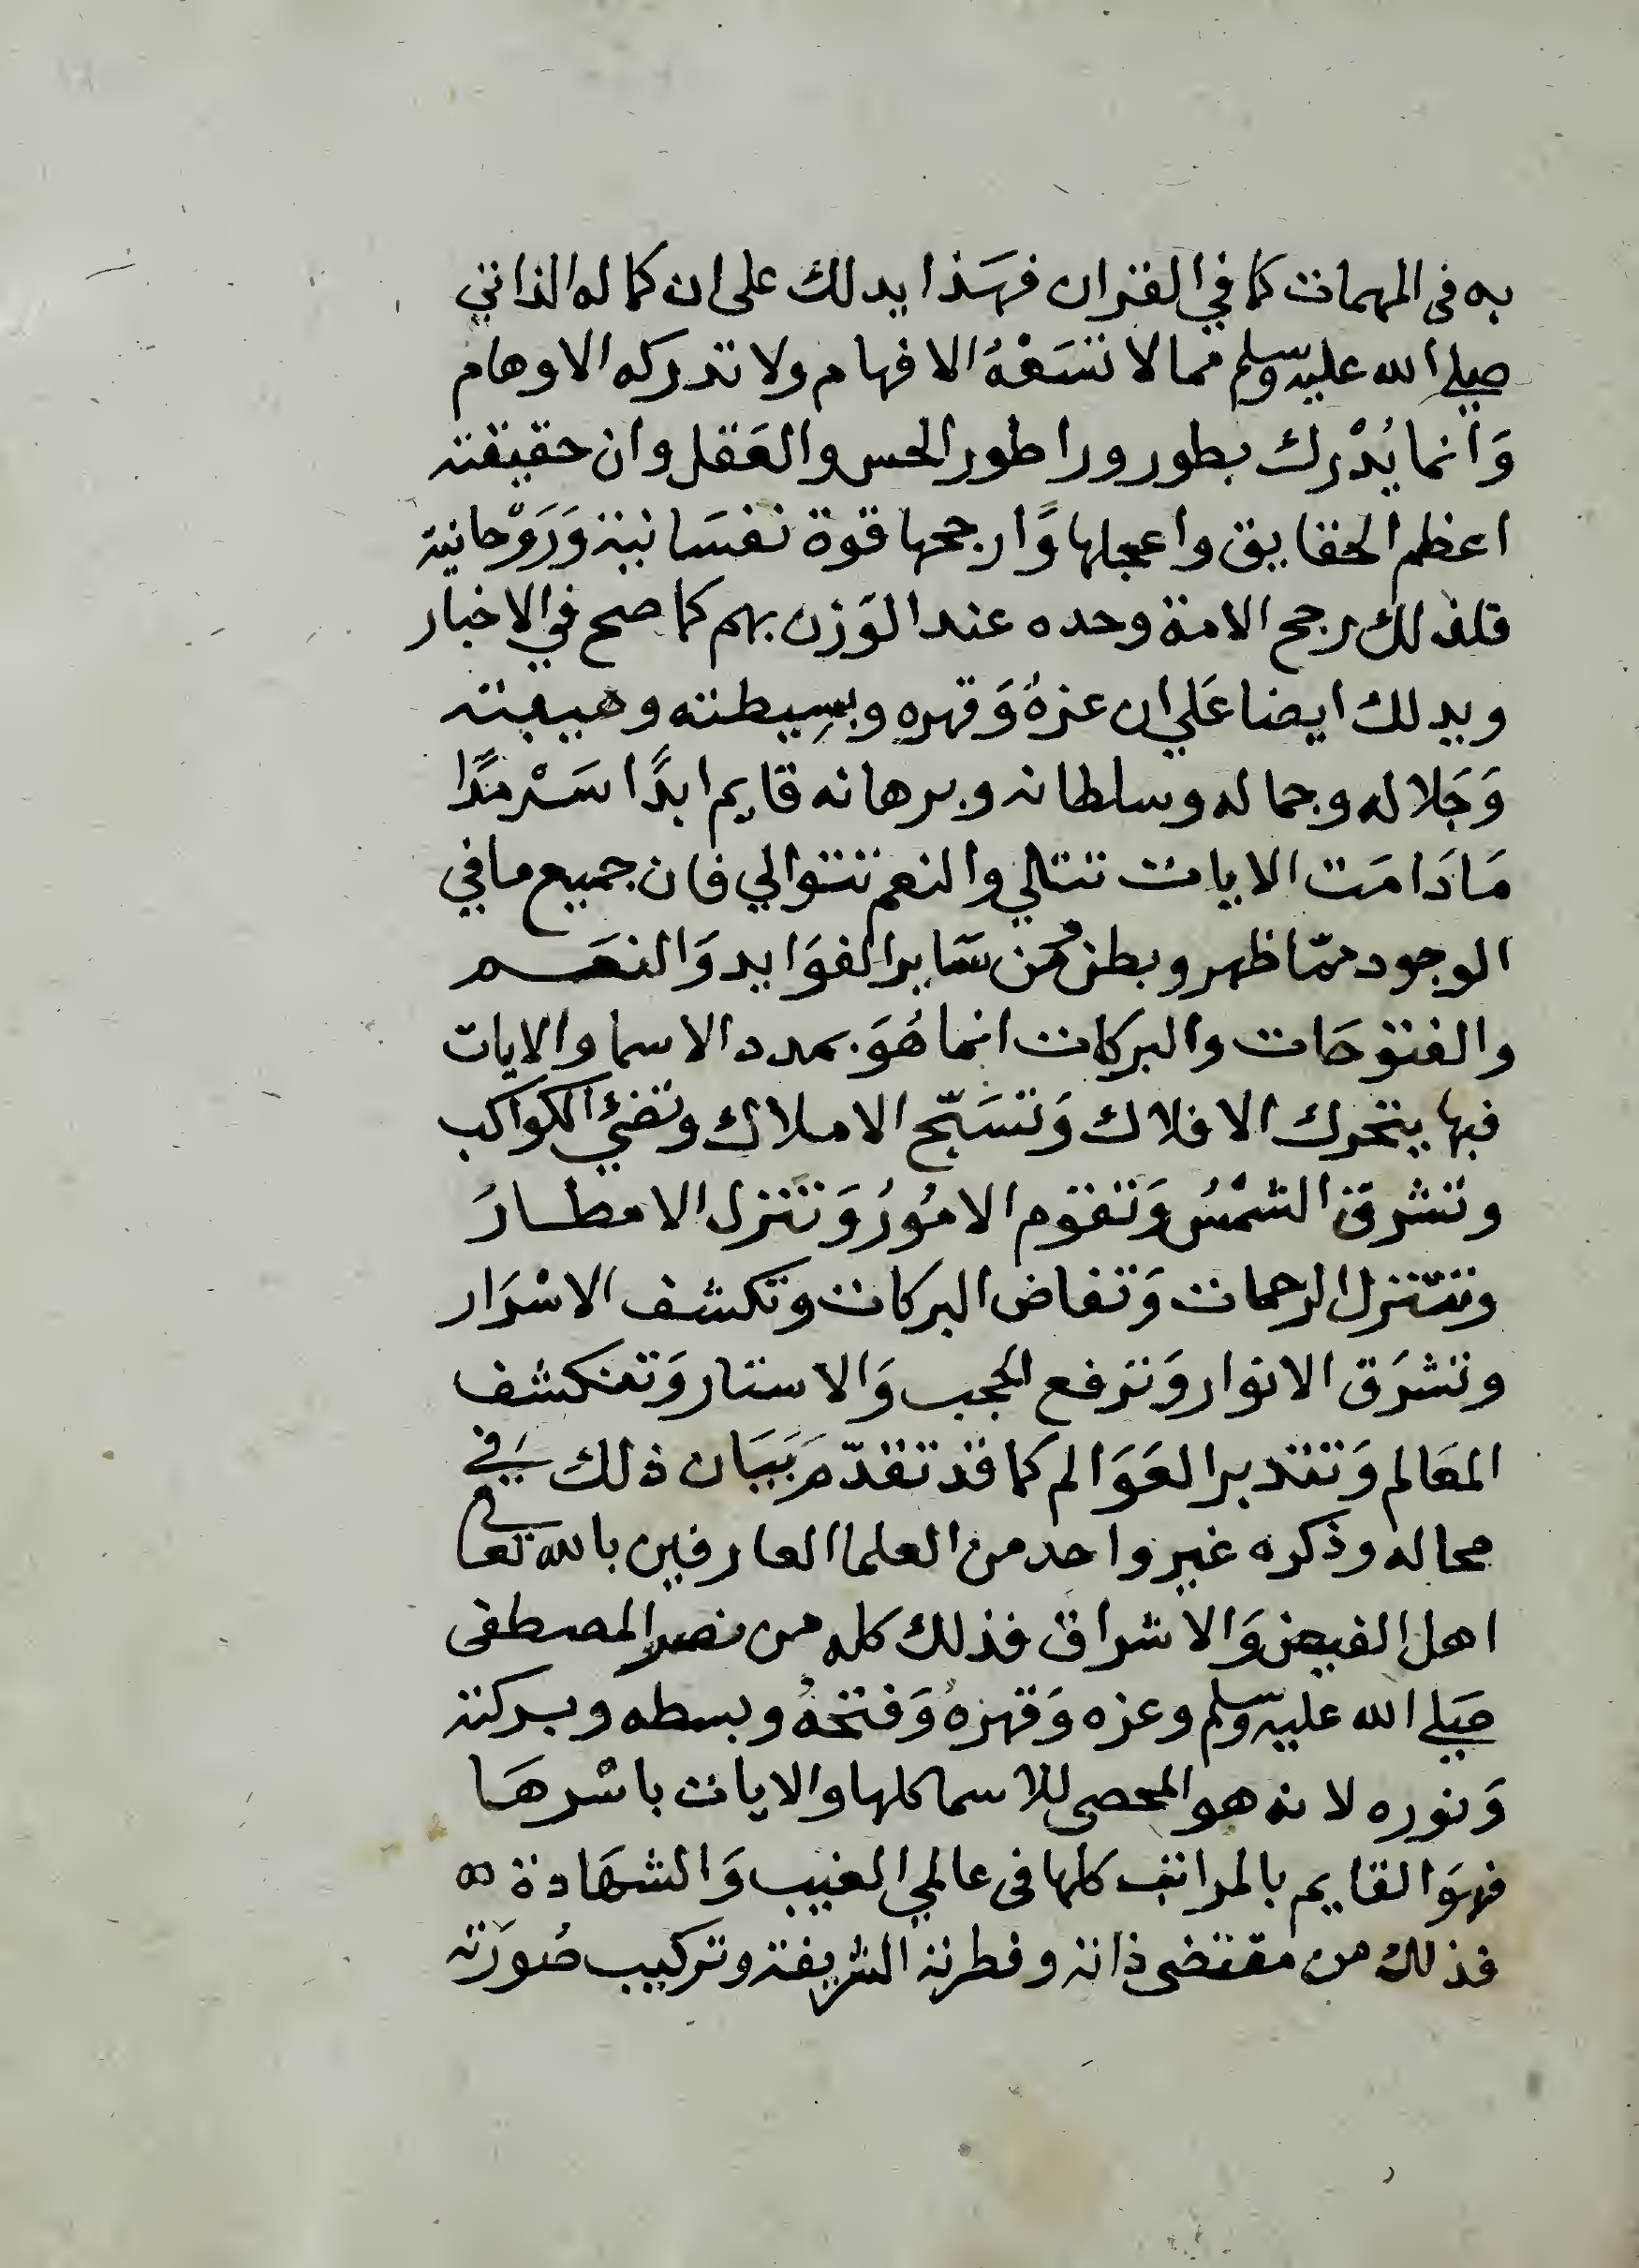 به فى المهمات كما في القران فهَذا يدلك على ان كماله الذاتي
صلي الله عليه وسلم مما لا تسَعْهُ الافهام ولا تدركه الاوهام
وَانما يُدْرك بطور ورا طور الحس والعَقل وان حقيقته
اعظم الحقايق واعجلها وَارجحها قوة نفسَانية وَرَوْحانية
فلذلك رجح الامة وحده عند الوَزن بهم كما صح في الاخبار
ويدلك ايضا عَلي ان عزهُ وَقهره وبسيطته وهيبته
وَجَلاله وجماله وسلطانه وبرهانه قايم ابدًا سَرْمدًا
مَا دَامَت الايات تتالي والنعم تتوالي فان جميع ما في
الوجود ممّا ظهر وبطن من سَاير الفوَايد وَالنعَم
والفتوحَات والبركات انما هُوَ بمدد الاسما والايات
فبها يتحرك الافلاك وَتسَبّح الاملاك وتضيء الكواكب
وتشرق الشمْسُ وَتقوم الامُورُ وَتنزل الامطارُ
وتتنزل الرحمات وَتفاض البركات وتكشف الاسْرَار
وتشرَق الانوار وَترفع الحجب وَالاستار وَتنكشف
المعَالم وَتتدبر العَوَالم كما قد تقدّمَ بَيَان ذلك في
محاله وذكره غير واحد من العلما العارفين بالله تعا
اهل الفيض وَالاشراق فذلك كله من نصر المصطفى
صَلي الله عليه وسلم وعزه وَقهرهُ وَفتحهُ وبسطه وبركته
وَنوره لانه هو المحصى للاسما كلها والايات باسْرهَا
فهوَ القايم بالمراتب كلها فى عالمي الغيب وَالشهَادة
فذلك من مقتضى ذاته وفطرته الشريفة وتركيب صُورَته